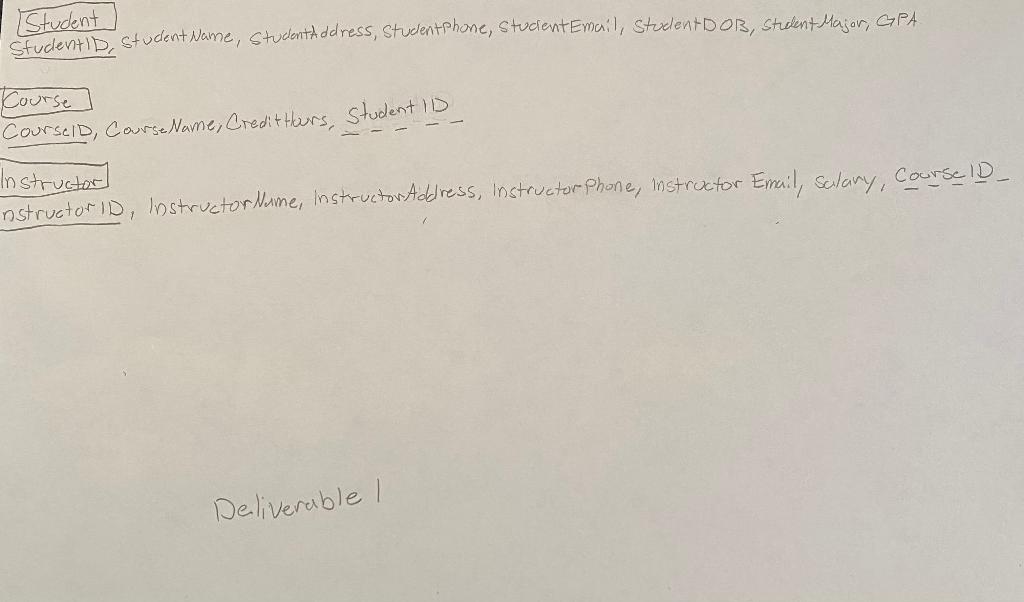 Student
StudentID, StudentName, StudentAddress, StudentPhone, StudentEmail, StudentDOB, StudentMajor, GPA
Course
CourseID, CourseName, CreditHours, StudentID
Instructor
nstructorID, InstructorName, InstructorAddress, InstructorPhone, Instructor Email, Salary, CourseID
Deliverable 1